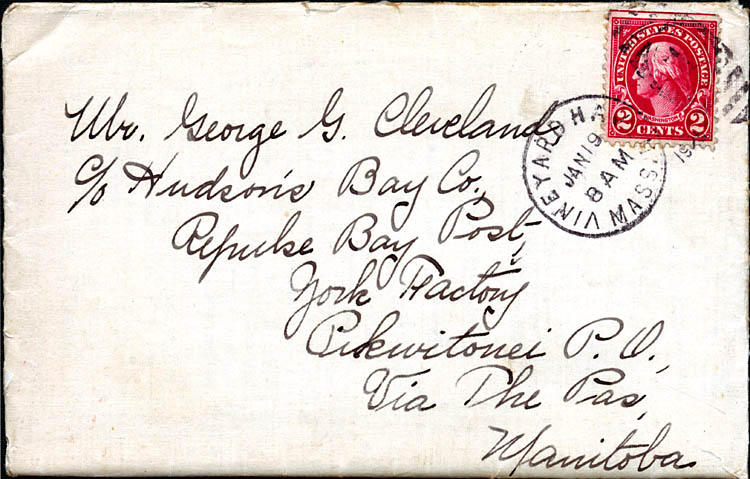 UNITED STATES POSTAGE
WASHINGTON
2 CENTS 2
VINEYARD HA
MASS.
JAN 19
8 AM
Mr. George G. Cleveland
c/o Hudson's Bay Co.,
Repulse Bay Post,
York Factory
Pikwitonei P. O.,
Via The Pas,
Manitoba